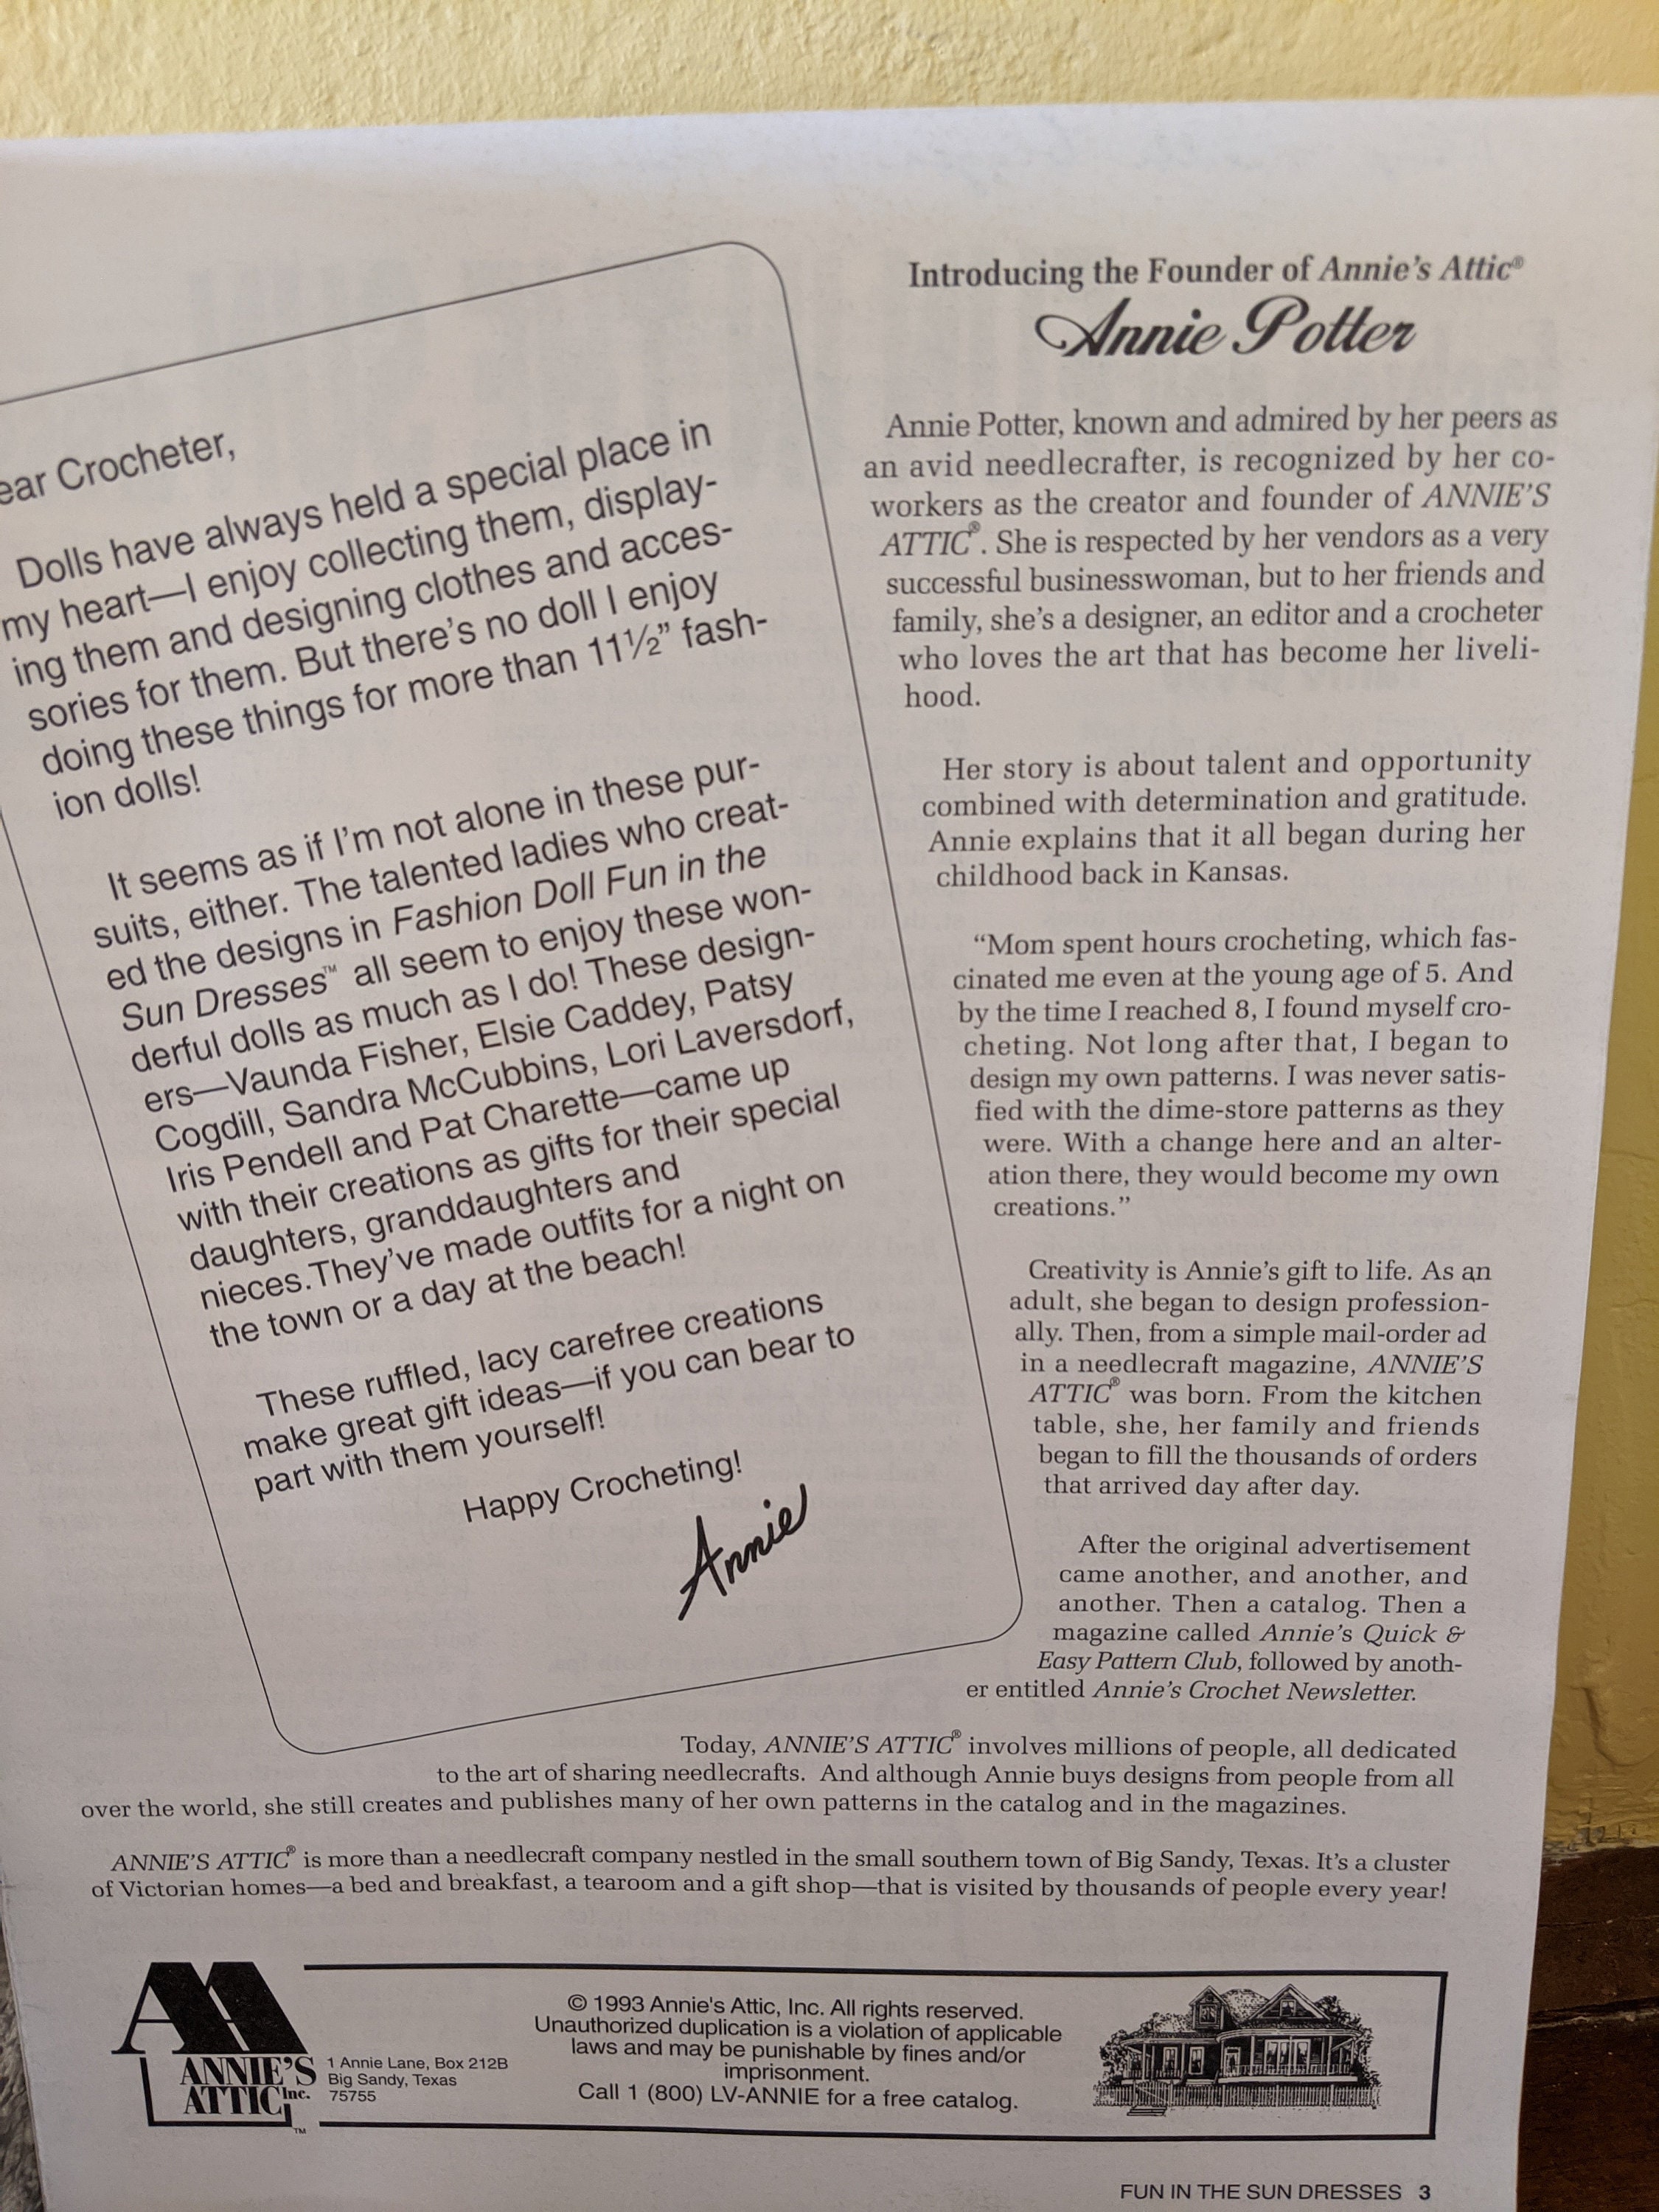 ear Crocheter,
Dolls have always held a special place in
my heart—I enjoy collecting them, display-
ing them and designing clothes and acces-
sories for them. But there's no doll I enjoy
doing these things for more than 11½" fash-
ion dolls!
It seems as if I'm not alone in these pur-
suits, either. The talented ladies who creat-
ed the designs in Fashion Doll Fun in the
Sun Dresses™ all seem to enjoy these won-
derful dolls as much as I do! These design-
ers—Vaunda Fisher, Elsie Caddey, Patsy
Cogdill, Sandra McCubbins, Lori Laversdorf,
Iris Pendell and Pat Charette—came up
with their creations as gifts for their special
daughters, granddaughters and
nieces.They've made outfits for a night on
the town or a day at the beach!
These ruffled, lacy carefree creations
make great gift ideas—if you can bear to
part with them yourself!
Happy Crocheting!
Annie
Introducing the Founder of Annie's Attic®
Annie Potter
Annie Potter, known and admired by her peers as
an avid needlecrafter, is recognized by her co-
workers as the creator and founder of ANNIE'S
ATTIC®. She is respected by her vendors as a very
successful businesswoman, but to her friends and
family, she's a designer, an editor and a crocheter
who loves the art that has become her liveli-
hood.
Her story is about talent and opportunity
combined with determination and gratitude.
Annie explains that it all began during her
childhood back in Kansas.
“Mom spent hours crocheting, which fas-
cinated me even at the young age of 5. And
by the time I reached 8, I found myself cro-
cheting. Not long after that, I began to
design my own patterns. I was never satis-
fied with the dime-store patterns as they
were. With a change here and an alter-
ation there, they would become my own
creations.”
Creativity is Annie's gift to life. As an
adult, she began to design profession-
ally. Then, from a simple mail-order ad
in a needlecraft magazine, ANNIE'S
ATTIC® was born. From the kitchen
table, she, her family and friends
began to fill the thousands of orders
that arrived day after day.
After the original advertisement
came another, and another, and
another. Then a catalog. Then a
magazine called Annie's Quick &
Easy Pattern Club, followed by anoth-
er entitled Annie's Crochet Newsletter.
Today, ANNIE'S ATTIC® involves millions of people, all dedicated
to the art of sharing needlecrafts. And although Annie buys designs from people from all
over the world, she still creates and publishes many of her own patterns in the catalog and in the magazines.
ANNIE'S ATTIC® is more than a needlecraft company nestled in the small southern town of Big Sandy, Texas. It's a cluster
of Victorian homes—a bed and breakfast, a tearoom and a gift shop—that is visited by thousands of people every year!
AA
ANNIE'S
ATTIC Inc.
™
1 Annie Lane, Box 212B
Big Sandy, Texas
75755
© 1993 Annie's Attic, Inc. All rights reserved.
Unauthorized duplication is a violation of applicable
laws and may be punishable by fines and/or
imprisonment.
Call 1 (800) LV-ANNIE for a free catalog.
FUN IN THE SUN DRESSES 3